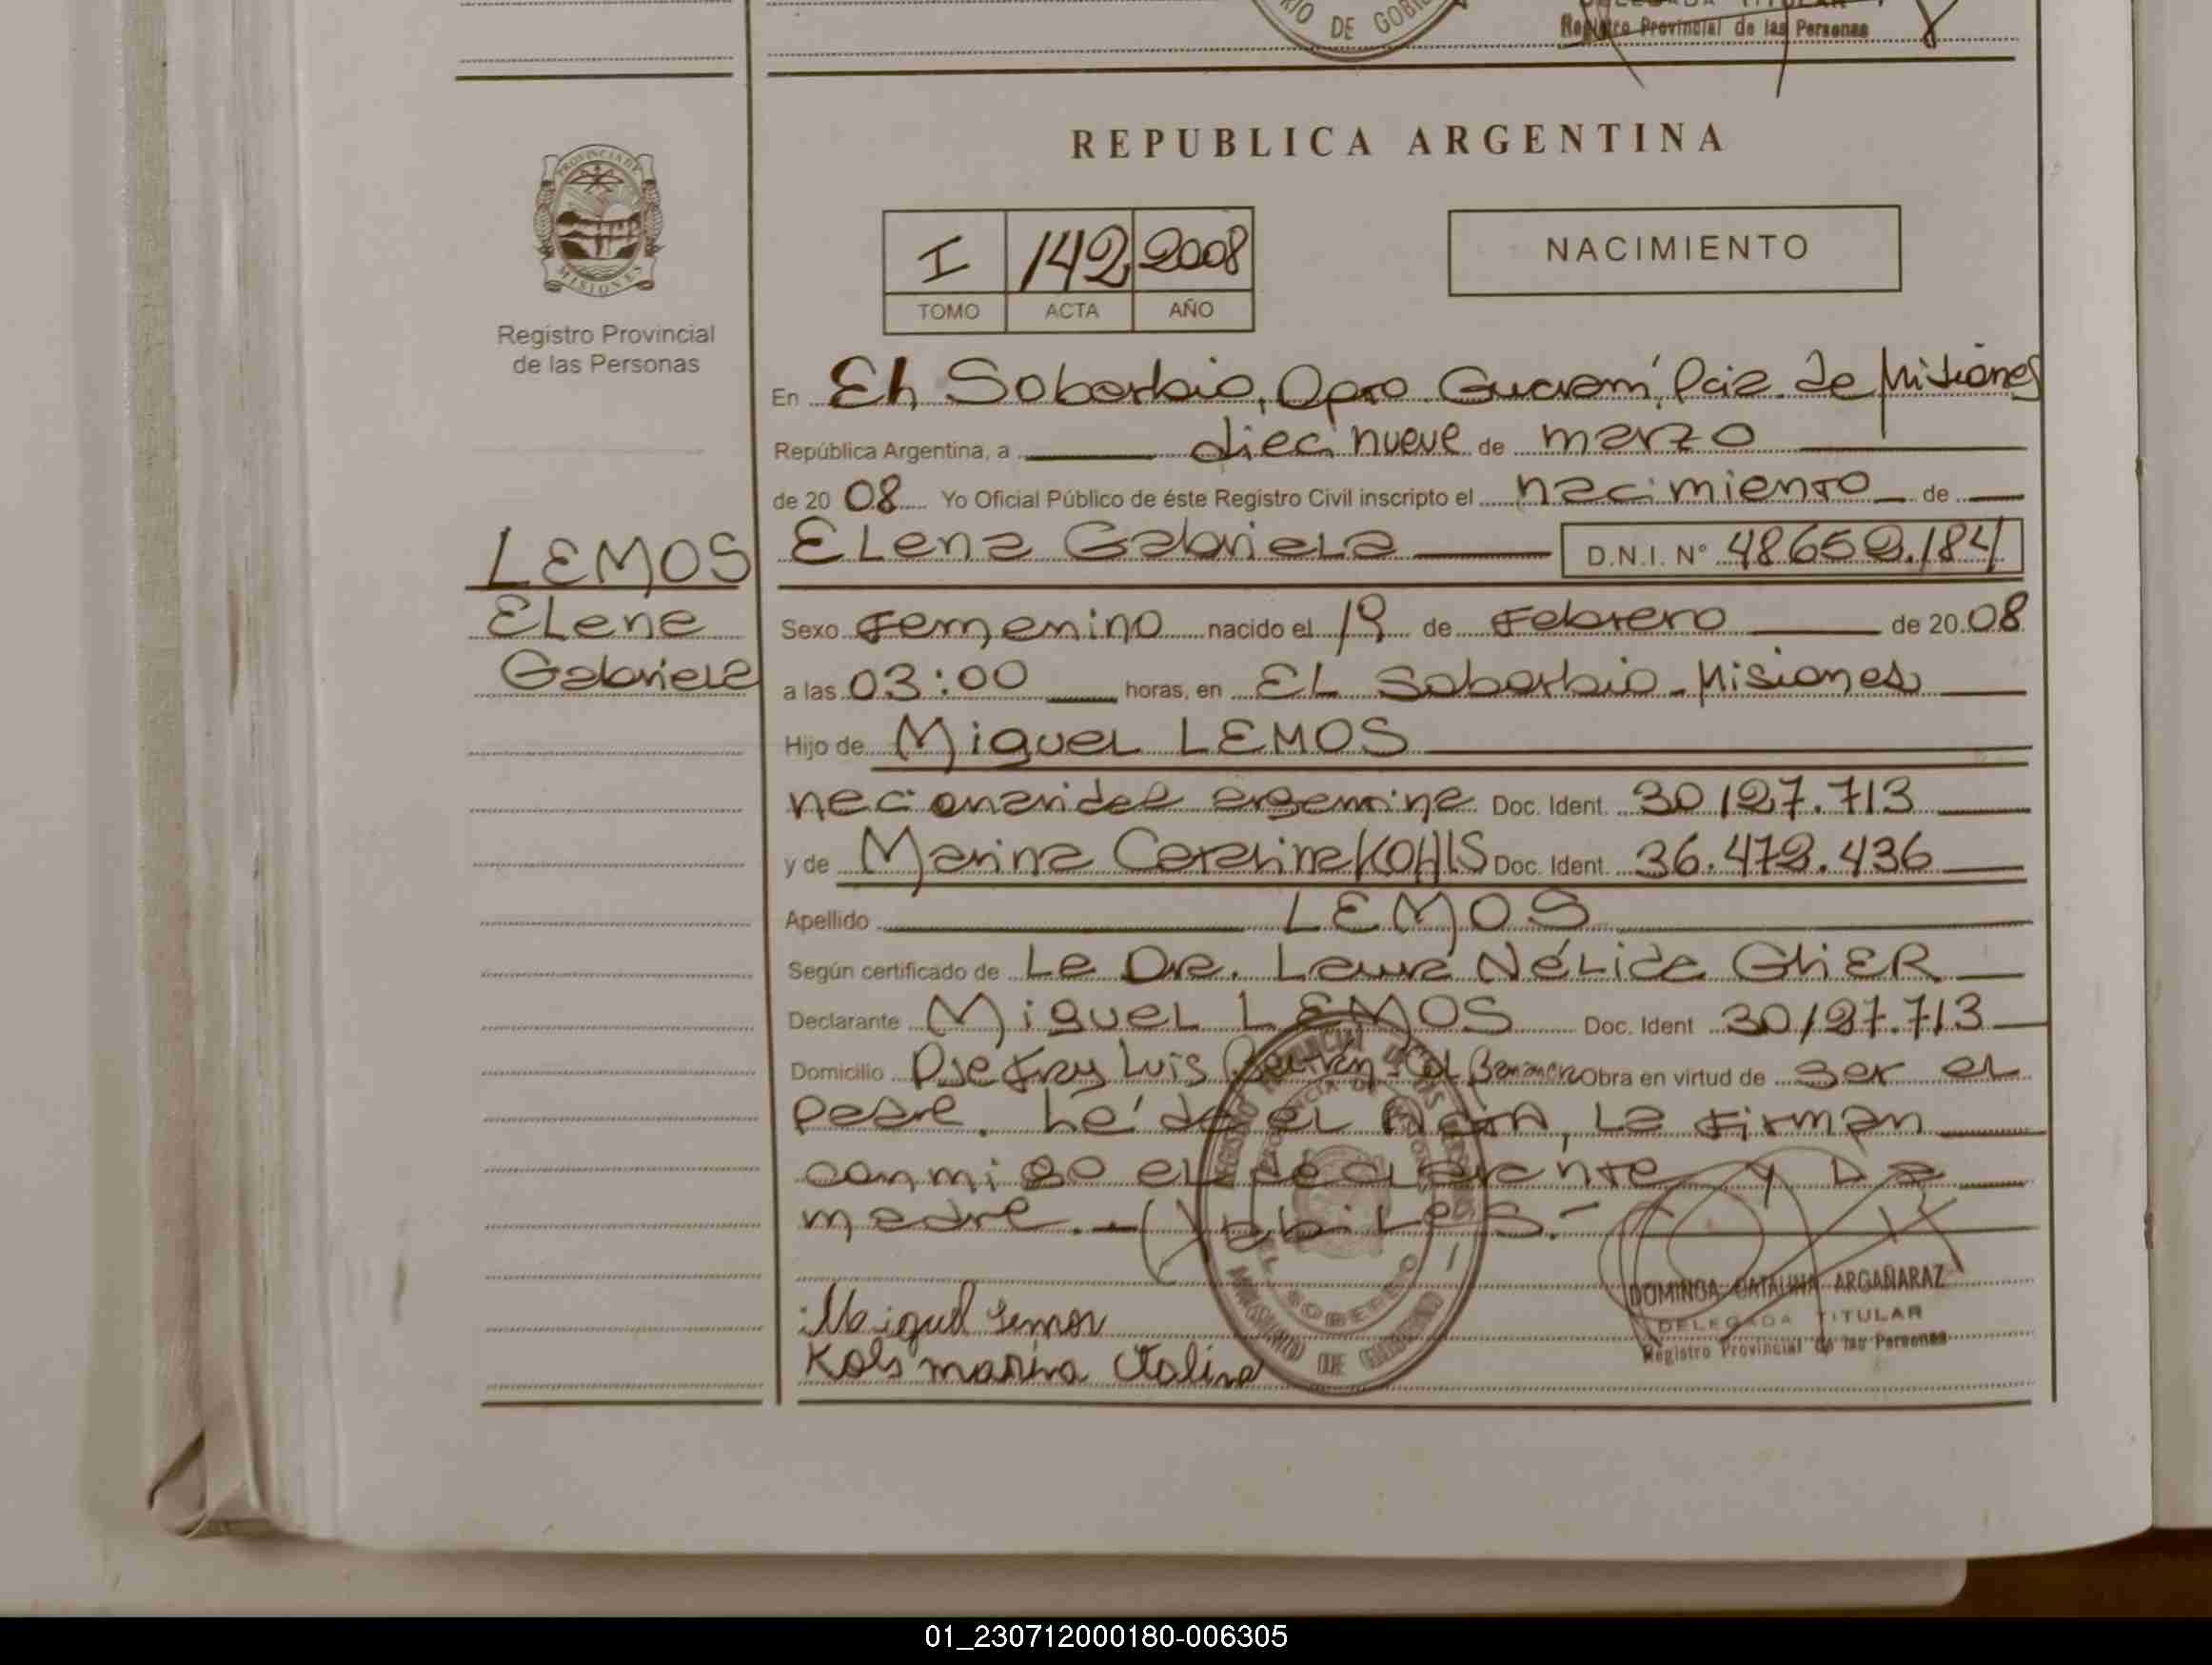 RIO DE GOBI
DELEGADA TITULAR
Registro Provincial de las Personas
REPUBLICA ARGENTINA
PROVINCIA DE
MISIONES
I 142 2008
TOMO ACTA AÑO
NACIMIENTO
Registro Provincial
de las Personas
En El Soberbio, Dpto. Guaraní, Pcia. de Misiones
República Argentina, a diecinueve de marzo
de 20 08 Yo Oficial Público de éste Registro Civil inscripto el nacimiento de
LEMOS
Elena
Gabriela
Elena Gabriela D.N.I. Nº 48652.184
Sexo Femenino nacido el 19 de Febrero de 20 08
a las 03:00 horas, en El Soberbio - Misiones
Hijo de Miguel LEMOS
nacionalidad argentina Doc. Ident. 30127.713
y de Marina Catalina KOHLS Doc. Ident. 36.472.436
Apellido LEMOS
Según certificado de La Dra. Laura Nélida GliER
Declarante Miguel LEMOS Doc. Ident 30127.713
Domicilio Pje Fray Luis Beltrán - Obra en virtud de ser el
padre. Leída el Acta, la firman
conmigo el declarante y la
madre. -
Miguel Lemos
Kols marina Catalina
EL SOBERBIO
MINISTERIO DE GOBIERNO
DOMINGA CATALINA ARGAÑARAZ
DELEGADA TITULAR
Registro Provincial de las Personas
01_230712000180-006305